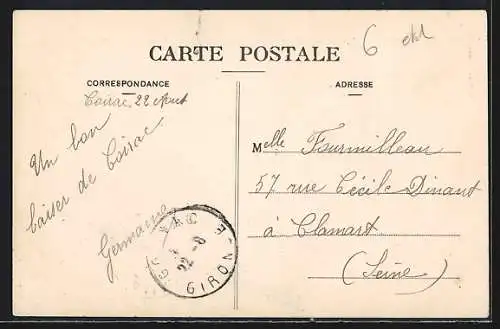 6
CARTE POSTALE
CORRESPONDANCE
ADRESSE
Coirac, 22 Août
Un bon
baiser de Coirac
Germaine
22 - 8
GIRONDE
Melle Fourmilleau
57 rue Cécile Dinant
à Clamart
(Seine)